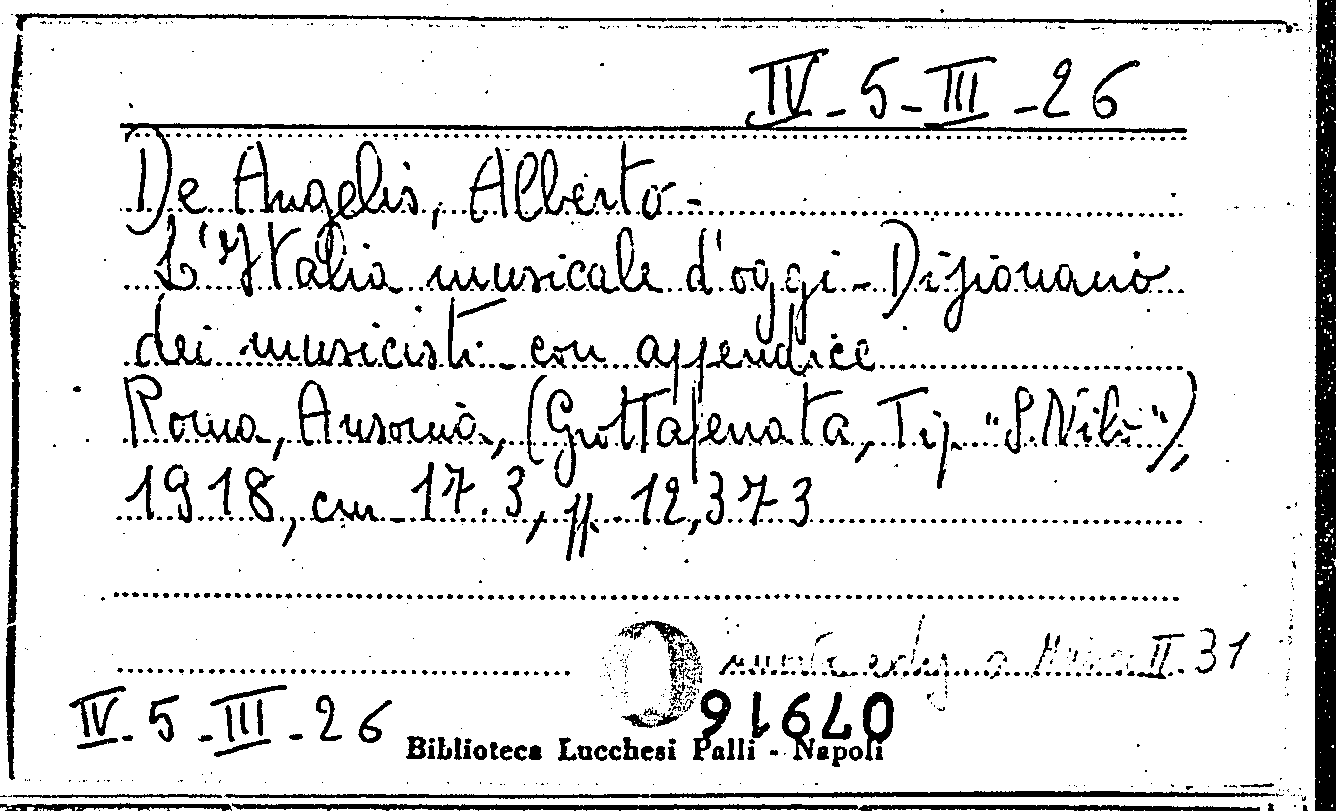 IV-5-III-26
De Angelis, Alberto-
L'Italia musicale d'oggi-Dizionario
dei musicisti-con appendice
Roma, Ausonia, (Grottaferrata, Tip. "S.Nilo"),
1918, cm 17.3, pp. 12,373
II.31
07916
IV-5-III-26
Biblioteca Lucchesi Palli - Napoli